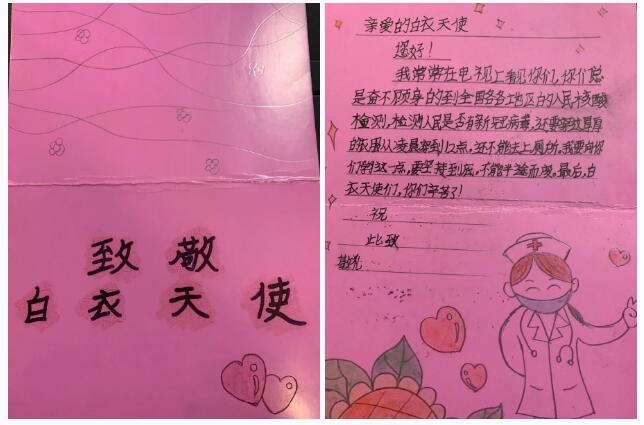 致敬
白衣天使
亲爱的白衣天使
您好！
我常常在电视上看见你们，你们总
是奋不顾身的到全国各各地区的人民核酸
检测，检测人民是否有新冠病毒，还要穿过厚厚
的衣服从凌晨穿到12点，还不能去上厕所，我要向你
们学习这一点，要坚持到底，不能半途而废。最后，白
衣天使们，你们辛苦了！
祝
此致
敬礼